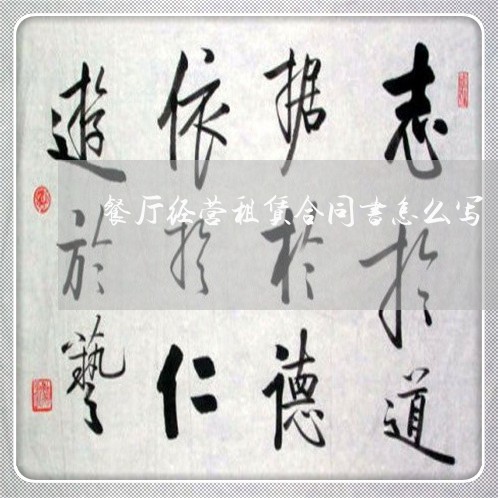 志於道
据於德
依於仁
遊於藝
餐厅经营租赁合同书怎么写